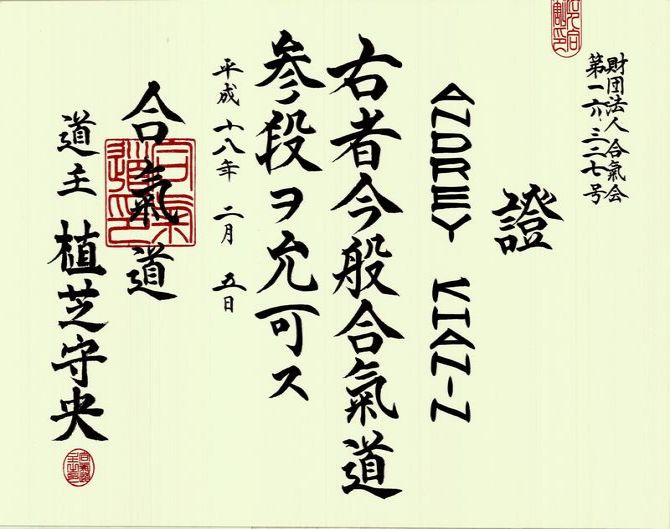 財団法人合氣会
第一六、三二七号
證
ANDREY KHANIN
右者今般合氣道
参段ヲ允可ス
平成十八年 二月 五日
合氣道
道主 植芝守央